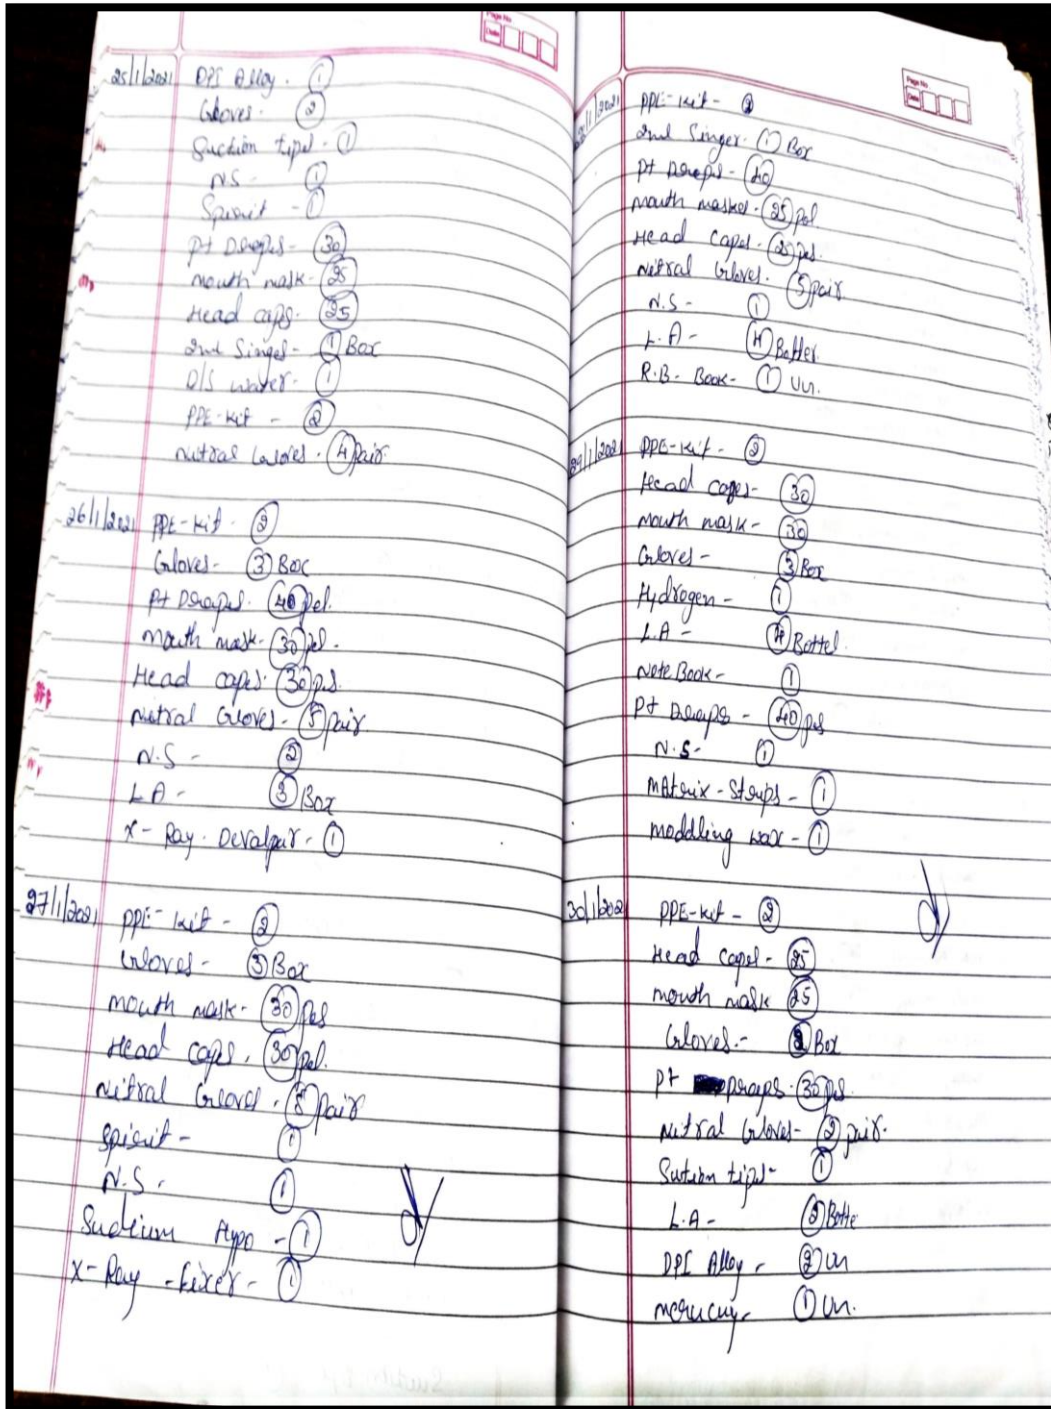 Page No
Date
25/1/2021 DPI Alloy - 1
Gloves - 2
Suction tips - 1
N.S - 1
Spirit - 1
Pt Drapes - 30
Mouth mask - 25
Head caps - 25
2nd Singes - 1 Box
D/S water - 1
PPE-kit - 2
Nitral Gloves - 4 pair
26/1/2021 PPE-kit - 2
Gloves - 3 Box
Pt Drapes - 40 ps.
Mouth mask - 30 ps.
Head capes - 30 ps.
Nitral Gloves - 5 pair
N.S - 2
L A - 3 Box
X-Ray - Devalpar - 1
27/1/2021 PPE-kit - 2
Gloves - 3 Box
Mouth mask - 30 pes
Head capes - 30 ps.
Nitral Gloves - 5 pair
Spirit - 1
N.S - 1
Sudium Hypo - 1
X-Ray - Fixer - 1
Page No
Date
/1/2021 PPE-kit - 2
2nd Singer - 1 Box
Pt Drapes - 40
Mouth masks - 25 ps.
Head capes - 25 ps.
Nitral Gloves - 5 pair
N.S - 1
L.A - 4 Bottel
R.B - Book - 1 Un.
29/1/2021 PPE-kit - 2
Head capes - 30
Mouth mask - 30
Gloves - 3 Box
Hydrogen - 1
L.A - 4 Bottel
Note Book - 1
Pt Draaps - 40 ps
N.S - 1
MAtrix - Strips - 1
moddling wax - 1
30/1/2021 PPE-kit - 2
Head capes - 25
Mouth mask 25
Gloves - Box
Pt Draaps - 30 ps
Nitral Gloves - 2 pair
Sution tips - 1
L.A - 2 Botte
DPI Alloy - 2 Un
Merucuy - 1 Un.